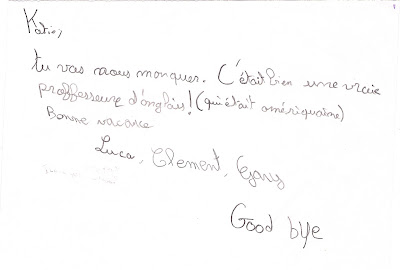 Katie,
tu vas nous monquer. C'était bien une vraie
proffesseure d'anglais! (qui était amériquaine)
Bonne vacance
Luca, Clement, Egary
Good bye
1